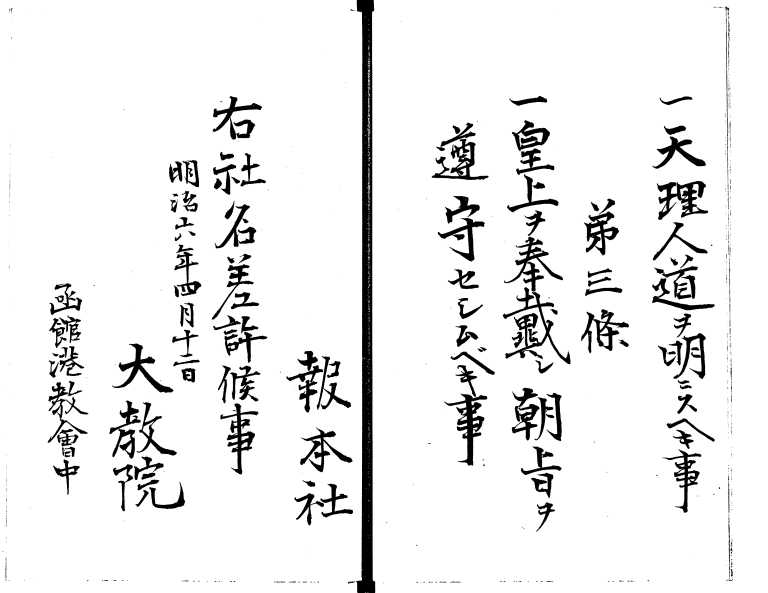 一天理人道ヲ明ニスヘキ事
第三條
一皇上ヲ奉戴シ朝旨ヲ
遵守セシムベキ事
報本社
右社名差許候事
明治六年四月十二日
大教院
函館港教會中